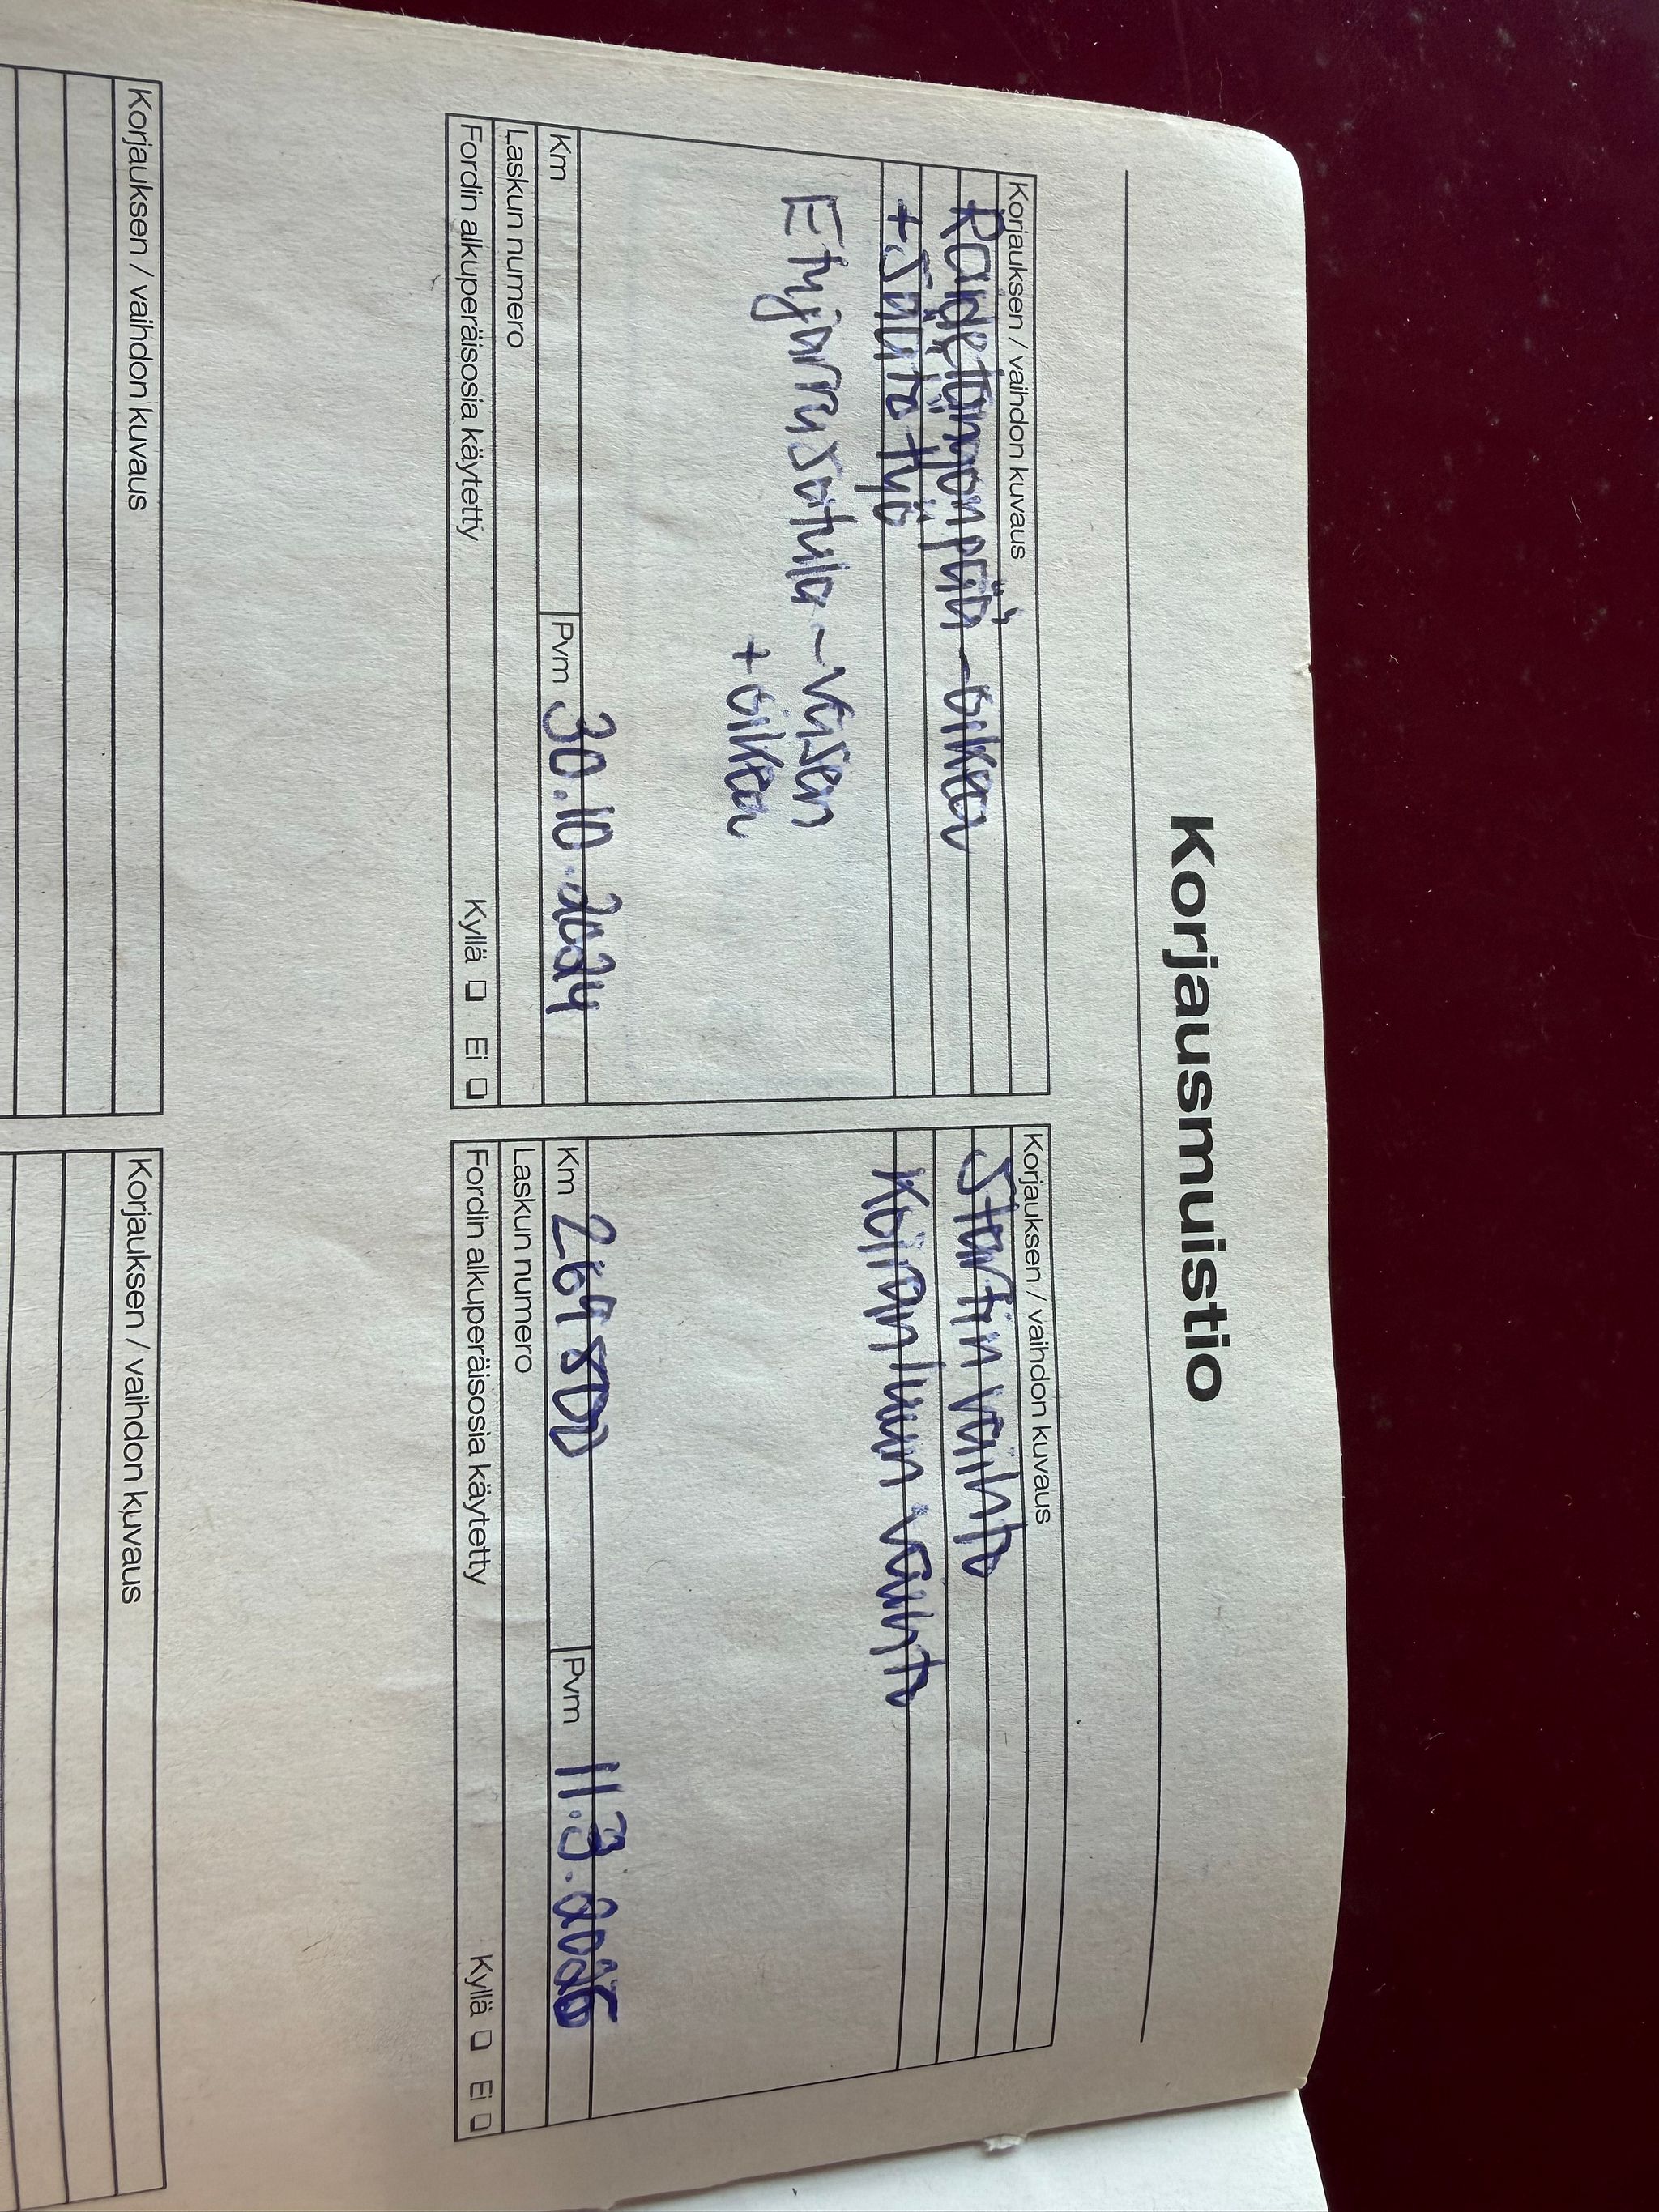 Korjausmuistio
Korjauksen / vaihdon kuvaus
Raidetangon pää - oikea
+ Säätötyö
Etujarrusatula - vasen
+ oikea
Km
Pvm 30.10.2024
Laskun numero
Fordin alkuperäisosia käytetty
Kyllä Ei
Korjauksen / vaihdon kuvaus
Startin vaihto
Koiranluun vaihto
Km
Pvm 11.3.2026
Laskun numero
Fordin alkuperäisosia käytetty
Kyllä Ei
Korjauksen / vaihdon kuvaus
Korjauksen / vaihdon kuvaus